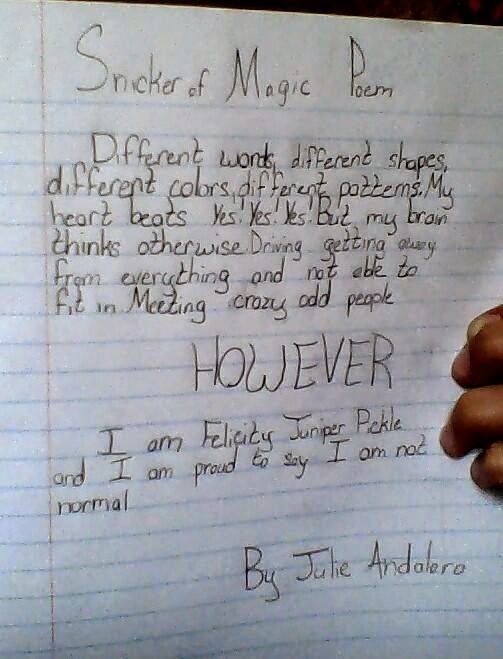 Snicker of Magic Poem
Different words, different shapes,
different colors, different patterns. My
heart beats Yes! Yes! Yes! But my brain
thinks otherwise. Driving getting away
from everything and not able to
fit in. Meeting crazy odd people
HOWEVER
I am Felicity Juniper Pickle
and I am proud to say I am not
normal
By Julie Andolero